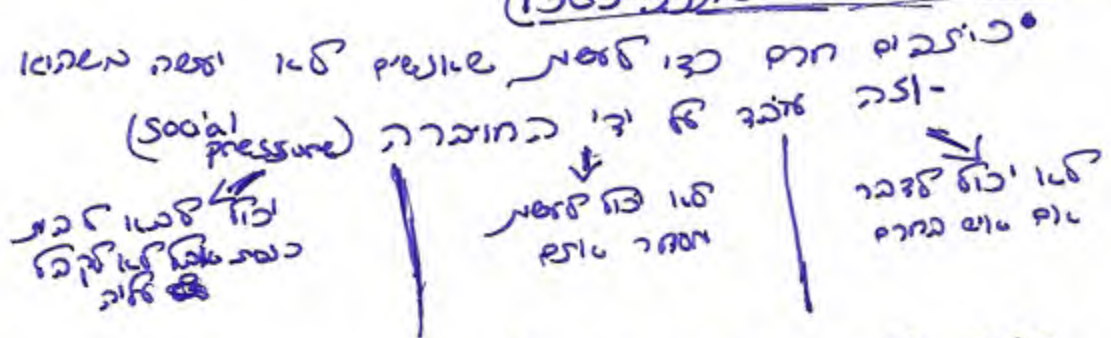 •כותבים חרם כדי לעשות שאנשים לא יעשה משהיא
-וזה עובד על ידי החויברה (social pressure)
לא יכול לדבר
אם איש בחרם
לא יכול לעשות
מסחר אתם
יכול לבאו לבית
כנסת אבל לא לקבל
עליה